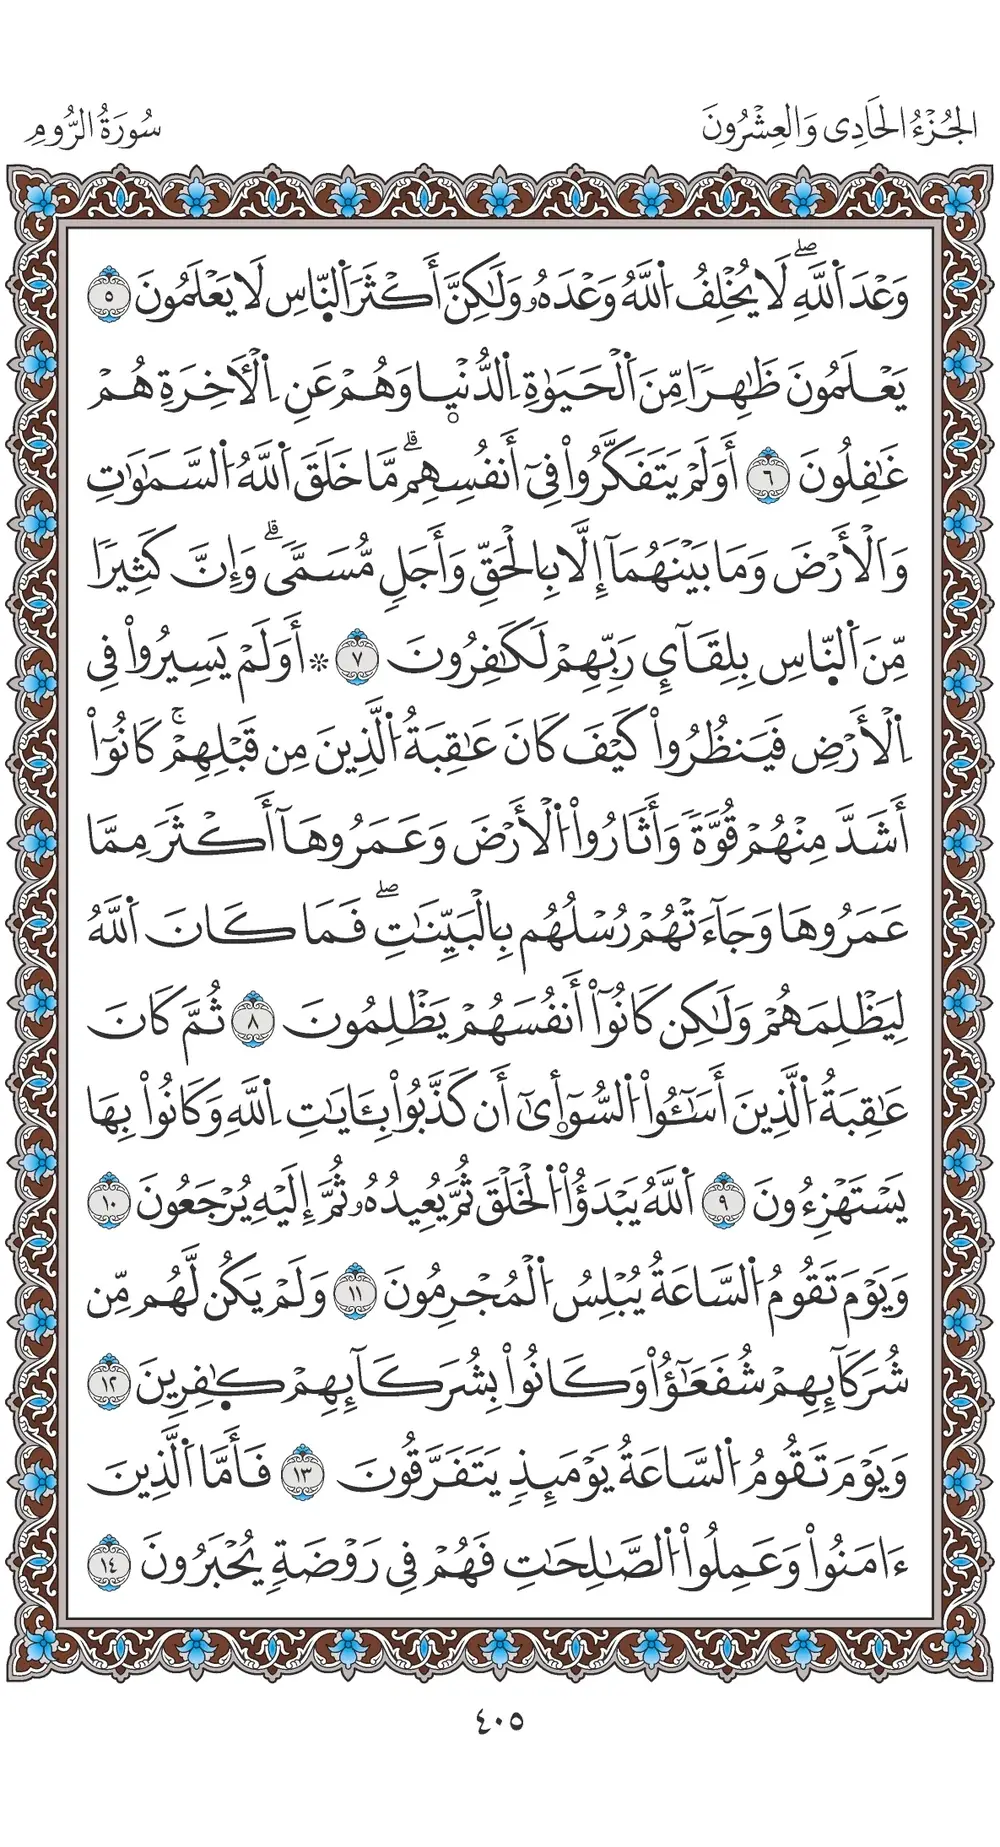 الجُزْءُ الحَادِى وَالعِشْرُونَ
سُورَةُ الرُّومِ
وَعْدَ اَ۬للَّهِۖ لَا يُخْلِفُ اُ۬للَّهُ وَعْدَهُۥ وَلَٰكِنَّ أَكْثَرَ اَ۬لنَّاسِ لَا يَعْلَمُونَ ٥
يَعْلَمُونَ ظَٰهِرٗا مِّنَ اَ۬لْحَيَوٰةِ اِ۬لدُّنْي۪ا وَهُمْ عَنِ اِ۬لْأٓخِرَةِ هُمْ
غَٰفِلُونَ ٦ أَوَلَمْ يَتَفَكَّرُواْ فِىٓ أَنفُسِهِمۗ مَّا خَلَقَ اَ۬للَّهُ اُ۬لسَّمَٰوَٰتِ
وَالْأَرْضَ وَمَا بَيْنَهُمَآ إِلَّا بِالْحَقِّ وَأَجَلٖ مُّسَمّٗىۗ وَإِنَّ كَثِيرٗا
مِّنَ اَ۬لنَّاسِ بِلِقَآيِٕ رَبِّهِمْ لَكَٰفِرُونَ ٧ ۞ أَوَلَمْ يَسِيرُواْ فِى
اِ۬لْأَرْضِ فَيَنظُرُواْ كَيْفَ كَانَ عَٰقِبَةُ اُ۬لَّذِينَ مِن قَبْلِهِمْۚ كَانُوٓاْ
أَشَدَّ مِنْهُمْ قُوَّةٗ وَأَثَارُواْ اُ۬لْأَرْضَ وَعَمَرُوهَآ أَكْثَرَ مِمَّا
عَمَرُوهَا وَجَآءَتْهُمْ رُسْلُهُم بِالْبَيِّنَٰتِۖ فَمَا كَانَ اَ۬للَّهُ
لِيَظْلِمَهُمْ وَلَٰكِن كَانُوٓاْ أَنفُسَهُمْ يَظْلِمُونَ ٨ ثُمَّ كَانَ
عَٰقِبَةُ اُ۬لَّذِينَ أَسَٰٓـُٔواْ اُ۬لسُّوٓأ۪ىٰٓ أَن كَذَّبُواْ بِـَٔايَٰتِ اِ۬للَّهِ وَكَانُواْ بِهَا
يَسْتَهْزِءُونَ ٩ اَ۬للَّهُ يَبْدَؤُاْ اُ۬لْخَلْقَ ثُمَّ يُعِيدُهُۥ ثُمَّ إِلَيْهِ يُرْجَعُونَ ١٠
وَيَوْمَ تَقُومُ اُ۬لسَّاعَةُ يُبْلِسُ اُ۬لْمُجْرِمُونَ ١١ وَلَمْ يَكُن لَّهُم مِّن
شُرَكَآئِهِمْ شُفَعَٰٓؤُاْ وَكَانُواْ بِشُرَكَآئِهِمْ كٰ۪فِرِينَ ١٢
وَيَوْمَ تَقُومُ اُ۬لسَّاعَةُ يَوْمَئِذٖ يَتَفَرَّقُونَ ١٣ فَأَمَّا اَ۬لَّذِينَ
ءَامَنُواْ وَعَمِلُواْ اُ۬لصَّٰلِحَٰتِ فَهُمْ فِى رَوْضَةٖ يُحْبَرُونَ ١٤
٤٠٥